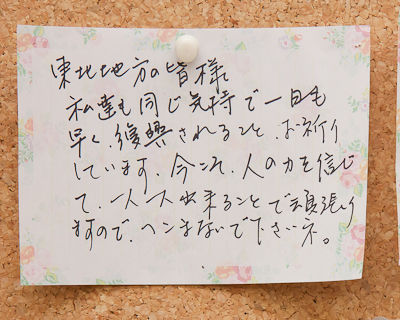 東北地方の皆様
私達も同じ気持で一日も
早く、復興されること、お祈り
しています。今こそ、人の力を信じ
て、一人一人出来ることで頑張り
ますので、ヘコまないで下さいネ。